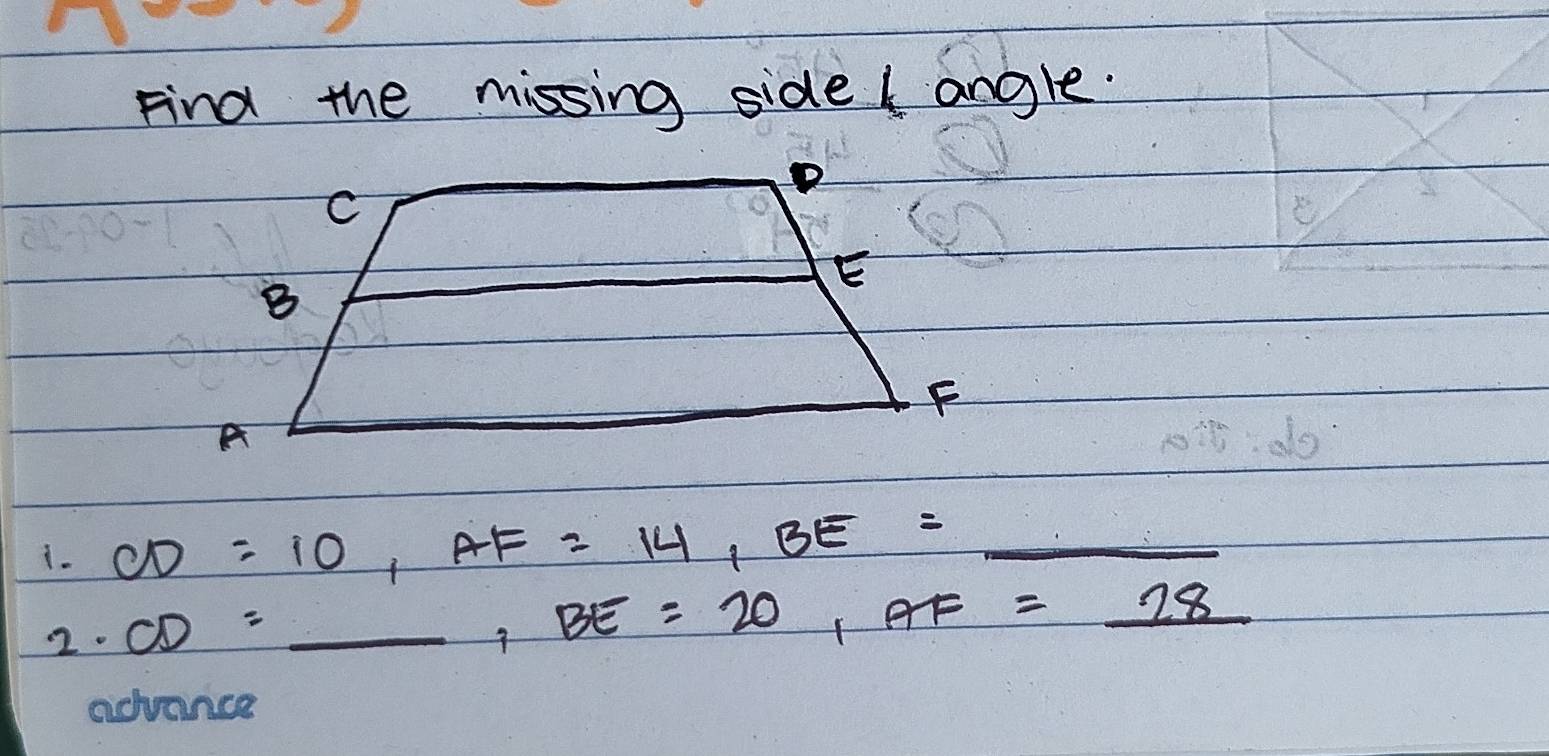 Find the missing side & angle.
C D
B E
A F
1. CD = 10, AF = 14, BE = ______
2. CD = ______, BE = 20, AF = 28
advance